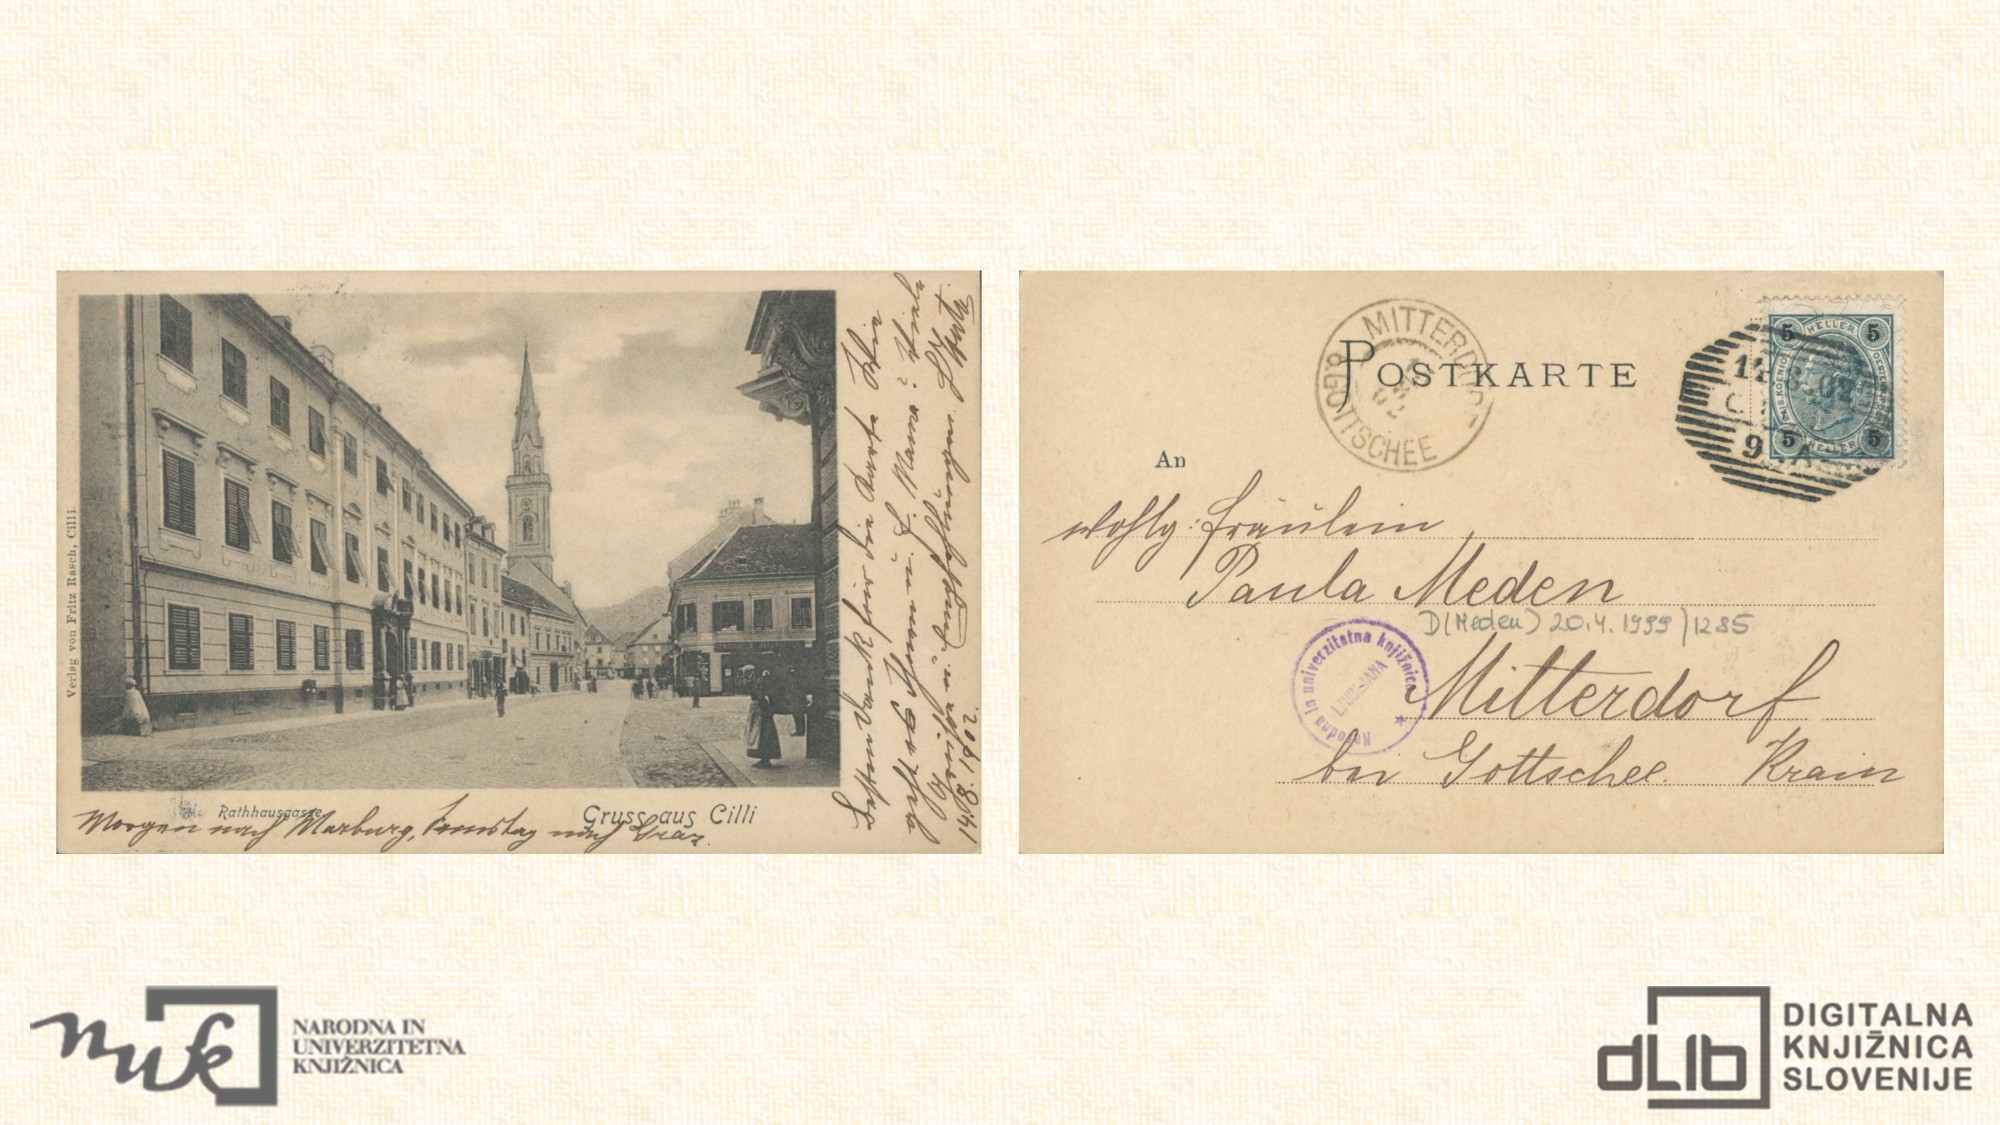 Verlag von Fritz Rasch, Cilli.
Rathhausgasse
Gruss aus Cilli
Morgen nach Marburg, Samstag nach Graz.
Besten Dank für die Karte Wie
geht es Ihnen u. f. Mama? Viele
Grüße u. Handküsse
14./8. 1902.
POSTKARTE
MITTERDORF
GOTTSCHEE
5 HELLER 5
5 HELLER 5
An
wohlg: Fräulein
Paula Meden
D(Meden) 20.4.1999/1285
Narodna in univerzitetna knjižnica
LJUBLJANA
Mitterdorf
bei Gottschee. Krain
nuk
NARODNA IN
UNIVERZITETNA
KNJIŽNICA
dLib
DIGITALNA
KNJIŽNICA
SLOVENIJE